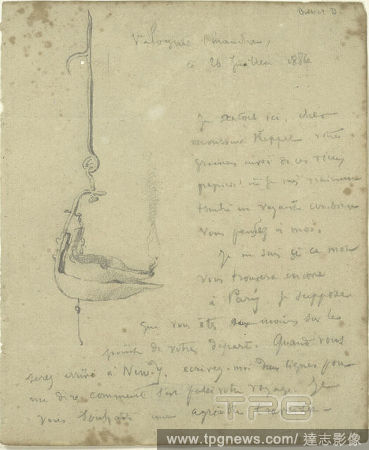 Valognes
ce 20 Juillet 1886
Je reçois ici, cher
monsieur Keppel, votre
gracieux envoi de ces vieux
papiers et je suis vraiment
touché en voyant combien
vous pensez à moi.
Je ne sais si ce mot
vous trouvera encore
à Paris. Je suppose
que vous êtes au moins sur les
point de votre départ. Quand vous
serez arrivé à New-Y. écrivez-moi deux lignes pour
me dire comment s'est passé votre voyage. Je
vous souhaite une agréable
TPG
www.tpgnews.com/ 達志影像